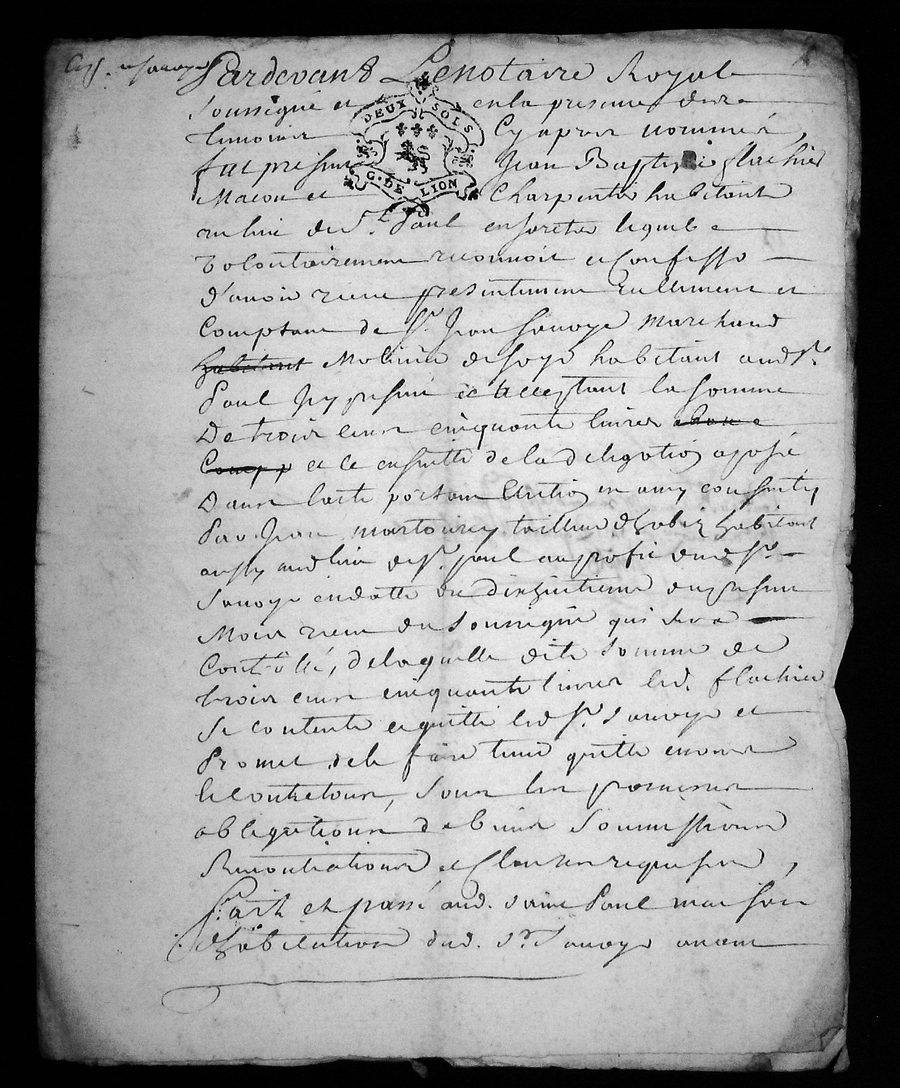 Pardevant Lenotaire Royal
Soussigné et en la presence des
temoins Cy apres nommés,
fut présent Jean Baptiste flachier
DEUX SOLS
G. DE LION
Macon et Charpentier habitant
au lieu de St. Paul en Jaretes lequel
volontairement reconnoit et Confesse
D'avoir receu presentement reellement et
Comptant de Sr. Jean Sauvage Marchand
habitant Molinié de soye habitant aud. St.
Paul Icy present et acceptant la somme
De trois cens cinquante livres
et ce ensuitte de la deleguation aposée
Dans l'acte portant
Par Jean tailleur d'habit habitant
aussy aud. lieu de St. paul au profit dud. Sr.
Sauvage en datte du dixhuitieme du present
Mois receu du soussigné qui sera
Controllé, de laquelle dite somme de
trois cens cinquante livres led. flachier
Se contente et quitte led. Sr. Sauvage et
Promet de le faire tenir quitte envers
et contre tous, sous les
obligations de biens soumissions
Renontiations et Clauses requises,
Fait et passé aud. saint Paul maison
d'habitation dud. Sr. Sauvage avant